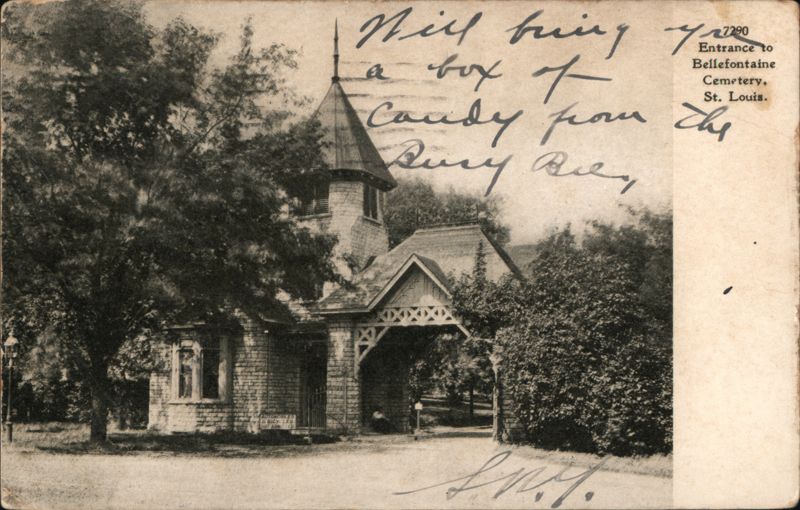 7290
Entrance to
Bellefontaine
Cemetery,
St. Louis.
Will bring you
a box of
Candy from the
Busy Bee,